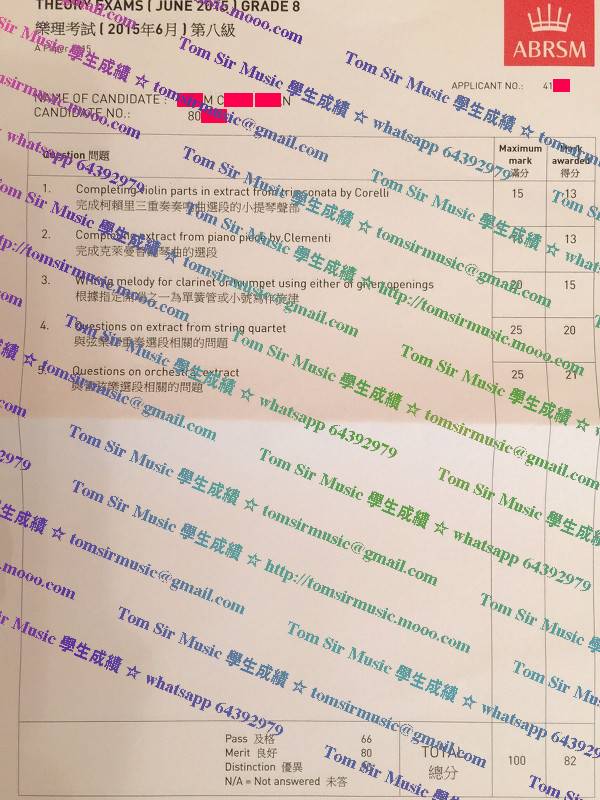 THEORY EXAMS ( JUNE 2015 ) GRADE 8
樂理考試 ( 2015年6月 ) 第八級
ABRSM
APPLICANT NO.: 41
NAME OF CANDIDATE :
CANDIDATE NO.: 80
Question 問題
Maximum mark 滿分
Mark awarded 得分
1. Completing violin parts in extract from trio sonata by Corelli 15 13
完成柯賴里三重奏奏鳴曲選段的小提琴聲部
2. Completing extract from piano piece by Clementi 13
完成克萊曼蒂鋼琴曲的選段
3. Writing melody for clarinet or trumpet using either of given openings 20 15
根據指定開頭之一為單簧管或小號寫作旋律
4. Questions on extract from string quartet 25 20
與弦樂四重奏選段相關的問題
5. Questions on orchestral extract 25 21
與管弦樂選段相關的問題
Pass 及格 66
Merit 良好 80
Distinction 優異
N/A = Not answered 未答
TOTAL 總分 100 82
Tom Sir Music 學生成績 ☆ tomsirmusic@gmail.com
Tom Sir Music 學生成績 ☆ whatsapp 64392979
Tom Sir Music 學生成績 ☆ http://tomsirmusic.mooo.com